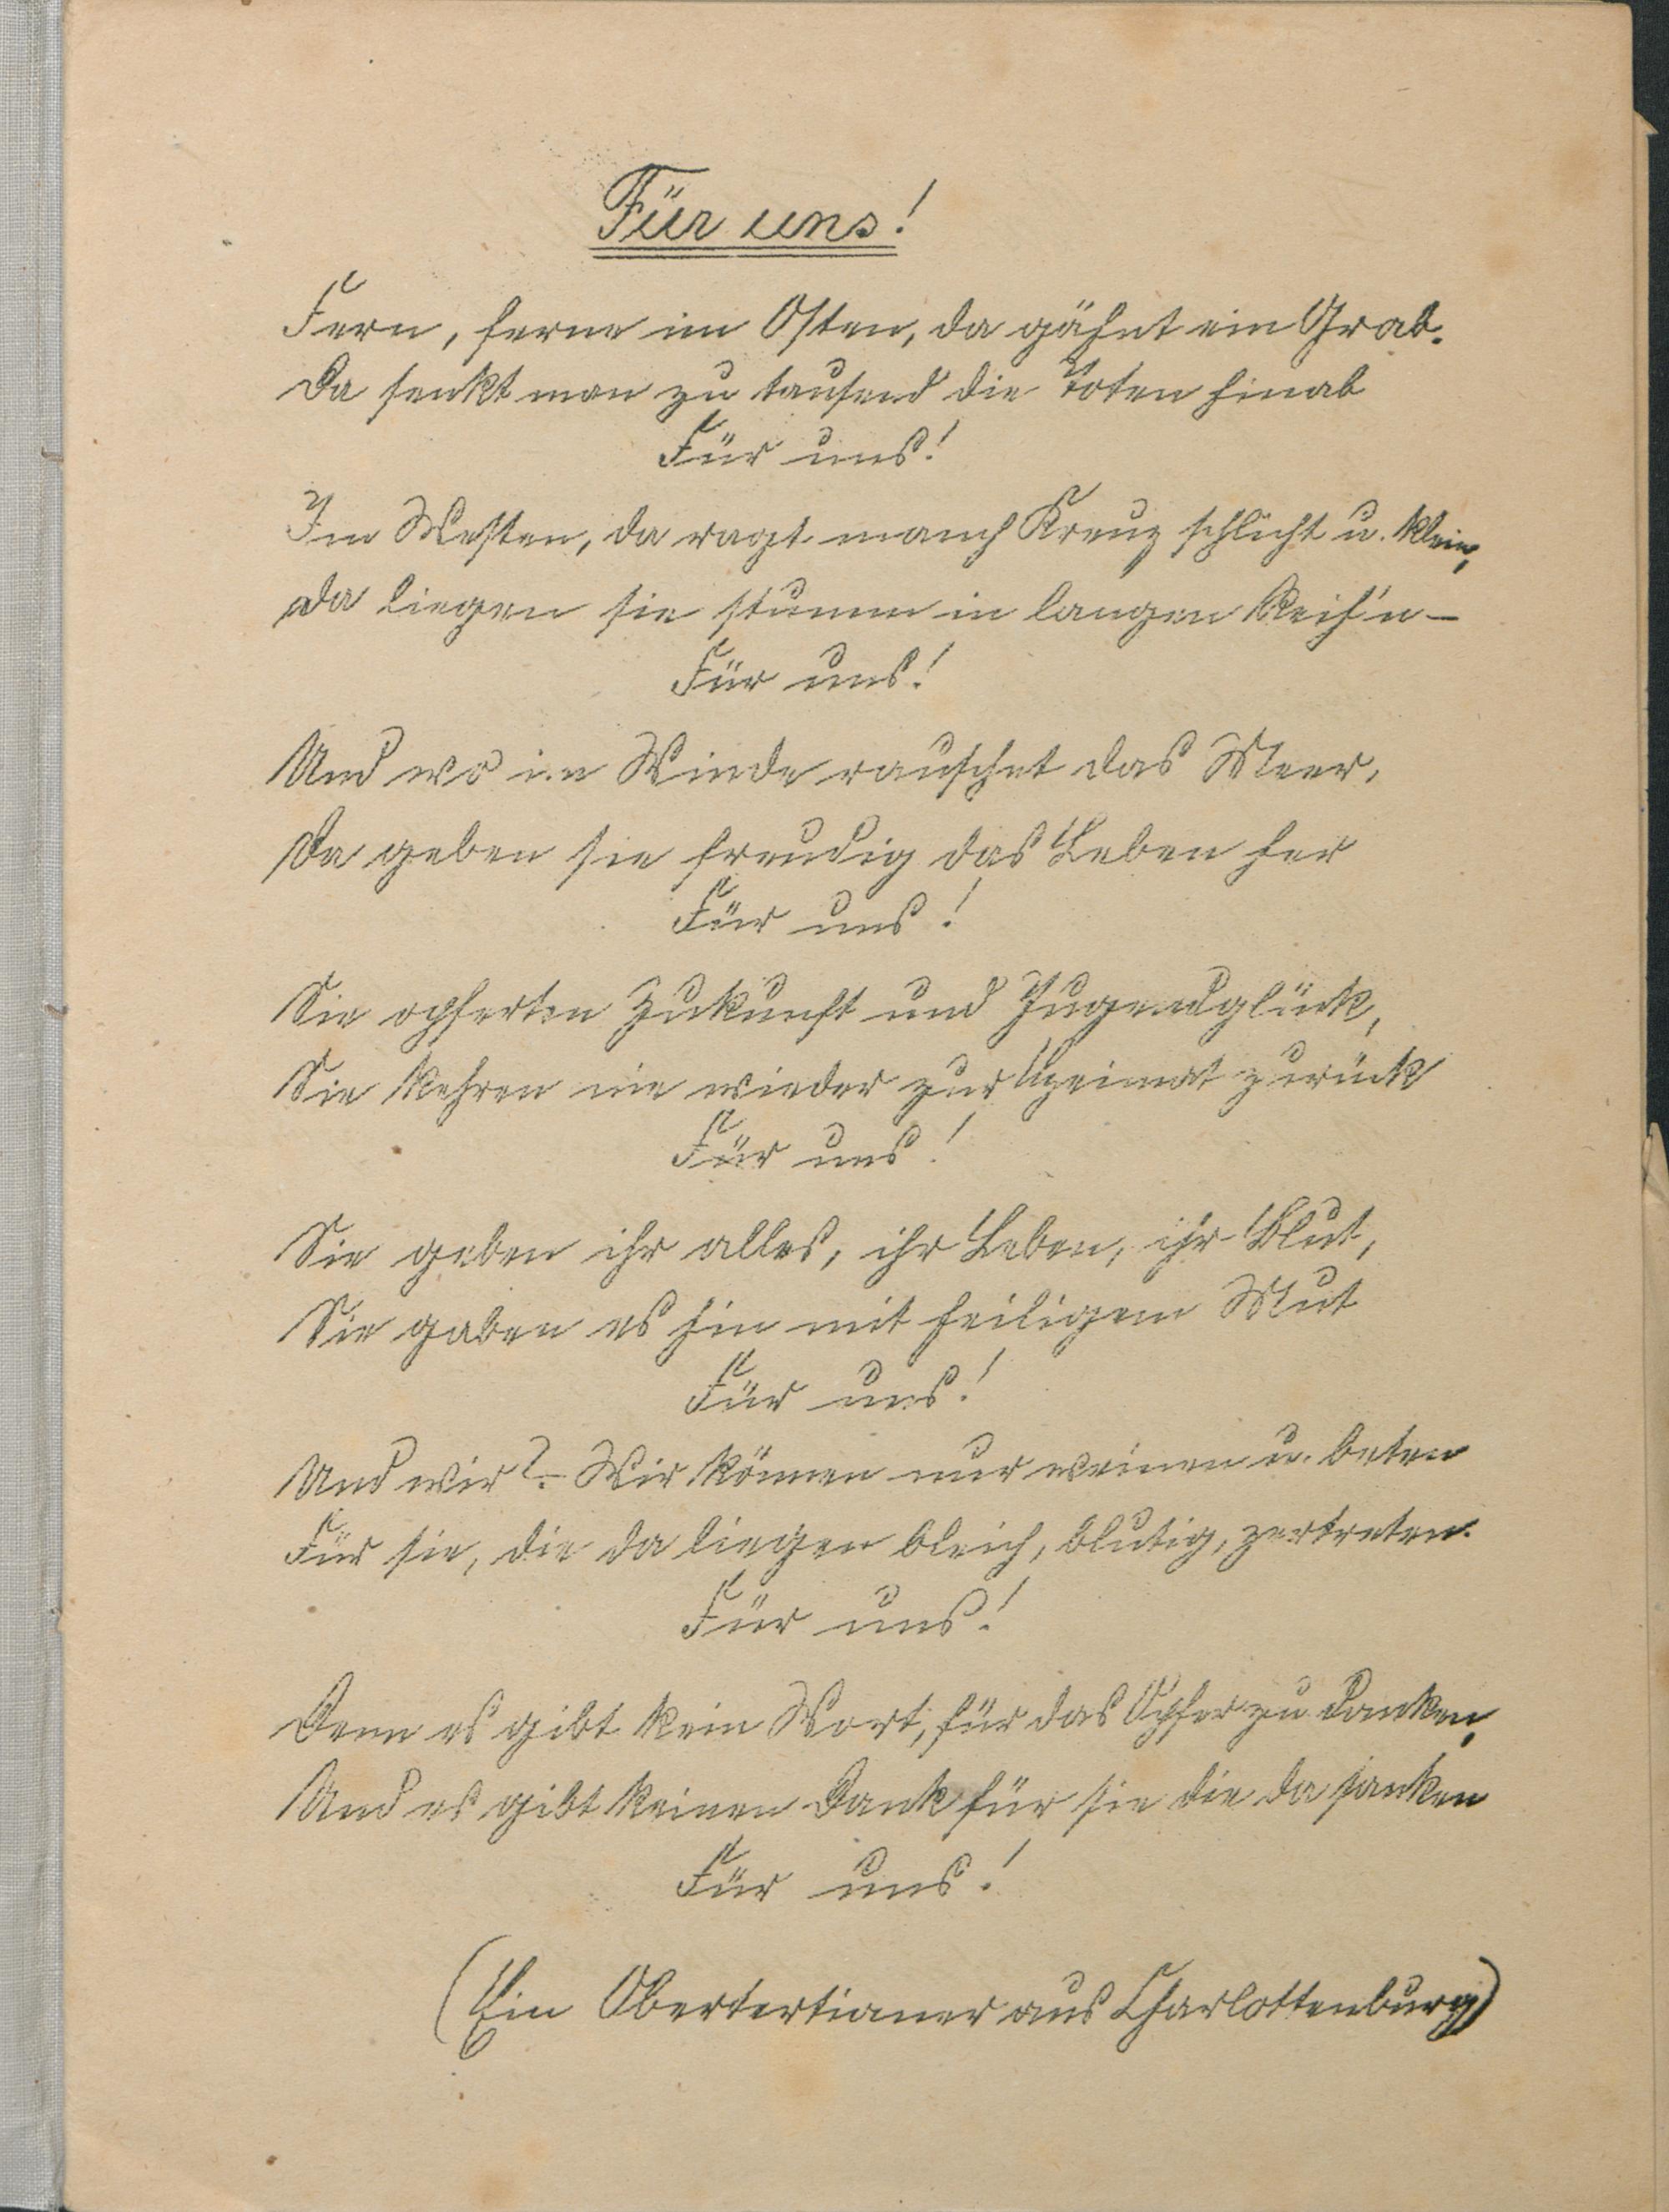 Für uns!
Fern, ferne im Osten, da gähnt ein Grab.
Da senkt man zu tausend die Toten hinab
Für uns!
Im Westen, da ragt manch Kreuz schlicht u. klein,
da liegen sie stumm in langen Reih'n -
Für uns!
Und wo im Winde rauschet das Meer,
Da geben sie freudig das Leben her
Für uns!
Sie opferten Zukunft und Jugendglück,
Sie kehren nie wieder zur Heimat zurück
Für uns!
Sie geben ihr alles, ihr Leben, ihr Blut,
Sie gaben es hin mit heiligem Mut
Für uns!
Und wir? - Wir können nur weinen u. beten
Für sie, die da liegen bleich, blutig, zertreten.
Für uns!
Denn es gibt kein Wort, für das Opfer zu danken,
Und es gibt keinen Dank für sie die da sanken
Für uns!
(Ein Obertertianer aus Charlottenburg)